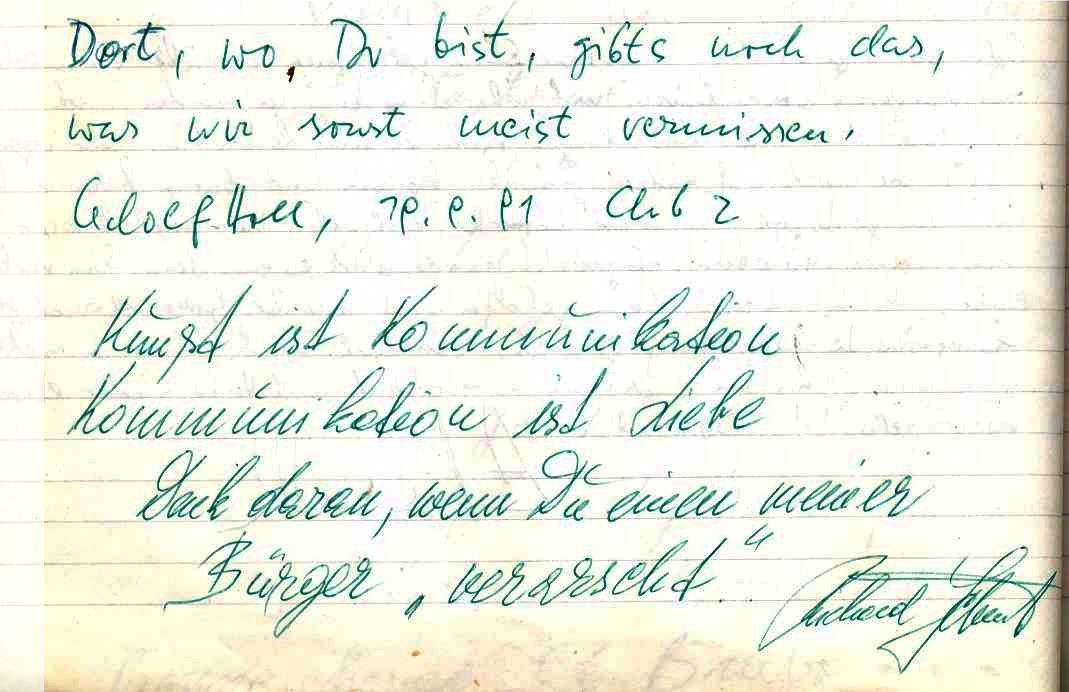 Dort, wo, Du bist, gibts noch das,
was wir sonst meist vermissen.
Adolf Holl, 18. 8. 81 Club 2
Kunst ist Kommunikation
Kommunikation ist Liebe
Denk daran, wenn Du einen meiner
Bürger „verarscht“
Richard